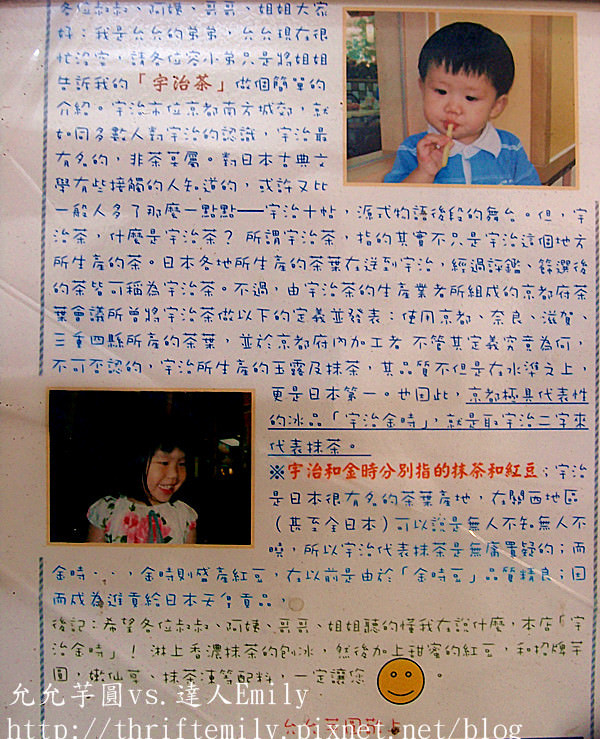 各位叔叔、阿姨、哥哥、姐姐大家
好：我是台台的弟弟，台台現在很
忙沒空，請各位容小弟只是將姐姐
告訴我的「宇治茶」做個簡單的
介紹。宇治市位京都南方城郊，就
如同多數人對宇治的認識，宇治最
有名的，非茶莫屬。對日本古典文
學有些接觸的人知道的，或許又比
一般人多了那麼一點點──宇治十帖，源式物語後段的舞台。但，宇
治茶，什麼是宇治茶？所謂宇治茶，指的其實不只是宇治這個地方
所生產的茶。日本各地所生產的茶葉在送到宇治，經過評鑑、篩選後
的茶皆可稱為宇治茶。不過，由宇治茶的生產業者所組成的京都府茶
葉會議所曾將宇治茶做以下的定義並發表：使用京都、奈良、滋賀、
三重四縣所產的茶葉，並於京都府內加工者 不管其定義究竟為何，
不可否認的，宇治所生產的玉露及抹茶，其品質不但是在水準之上，
更是日本第一。也因此，京都極具代表性
的冰品「宇治金時」，就是取宇治二字來
代表抹茶。
※宇治和金時分別指的抹茶和紅豆；宇治
是日本很有名的茶葉產地，在關西地區
（甚至全日本）可以說是無人不知無人不
曉，所以宇治代表抹茶是無庸置疑的；而
金時...，金時則盛產紅豆，在以前是由於「金時豆」品質精良；因
而成為進貢給日本天皇貢品，
後記：希望各位叔叔、阿姨、哥哥、姐姐聽的懂我在說什麼，本店「宇
治金時」！淋上香濃抹茶的刨冰，然後加上甜蜜的紅豆，和招牌芋
圓，嫩仙草、抹茶凍等配料，一定讓您 。
允允芋圓敬上
允允芋圓vs.達人Emily
http://thriftemily.pixnet.net/blog